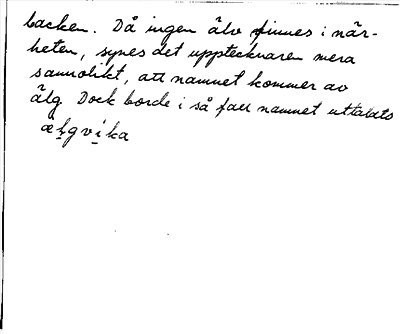 backen. Då ingen älv finnes i när-
heten, synes det upptecknaren mera
sannolikt, att namnet kommer av
älg. Dock borde i så fall namnet uttalats
æl̥gvi̥ka